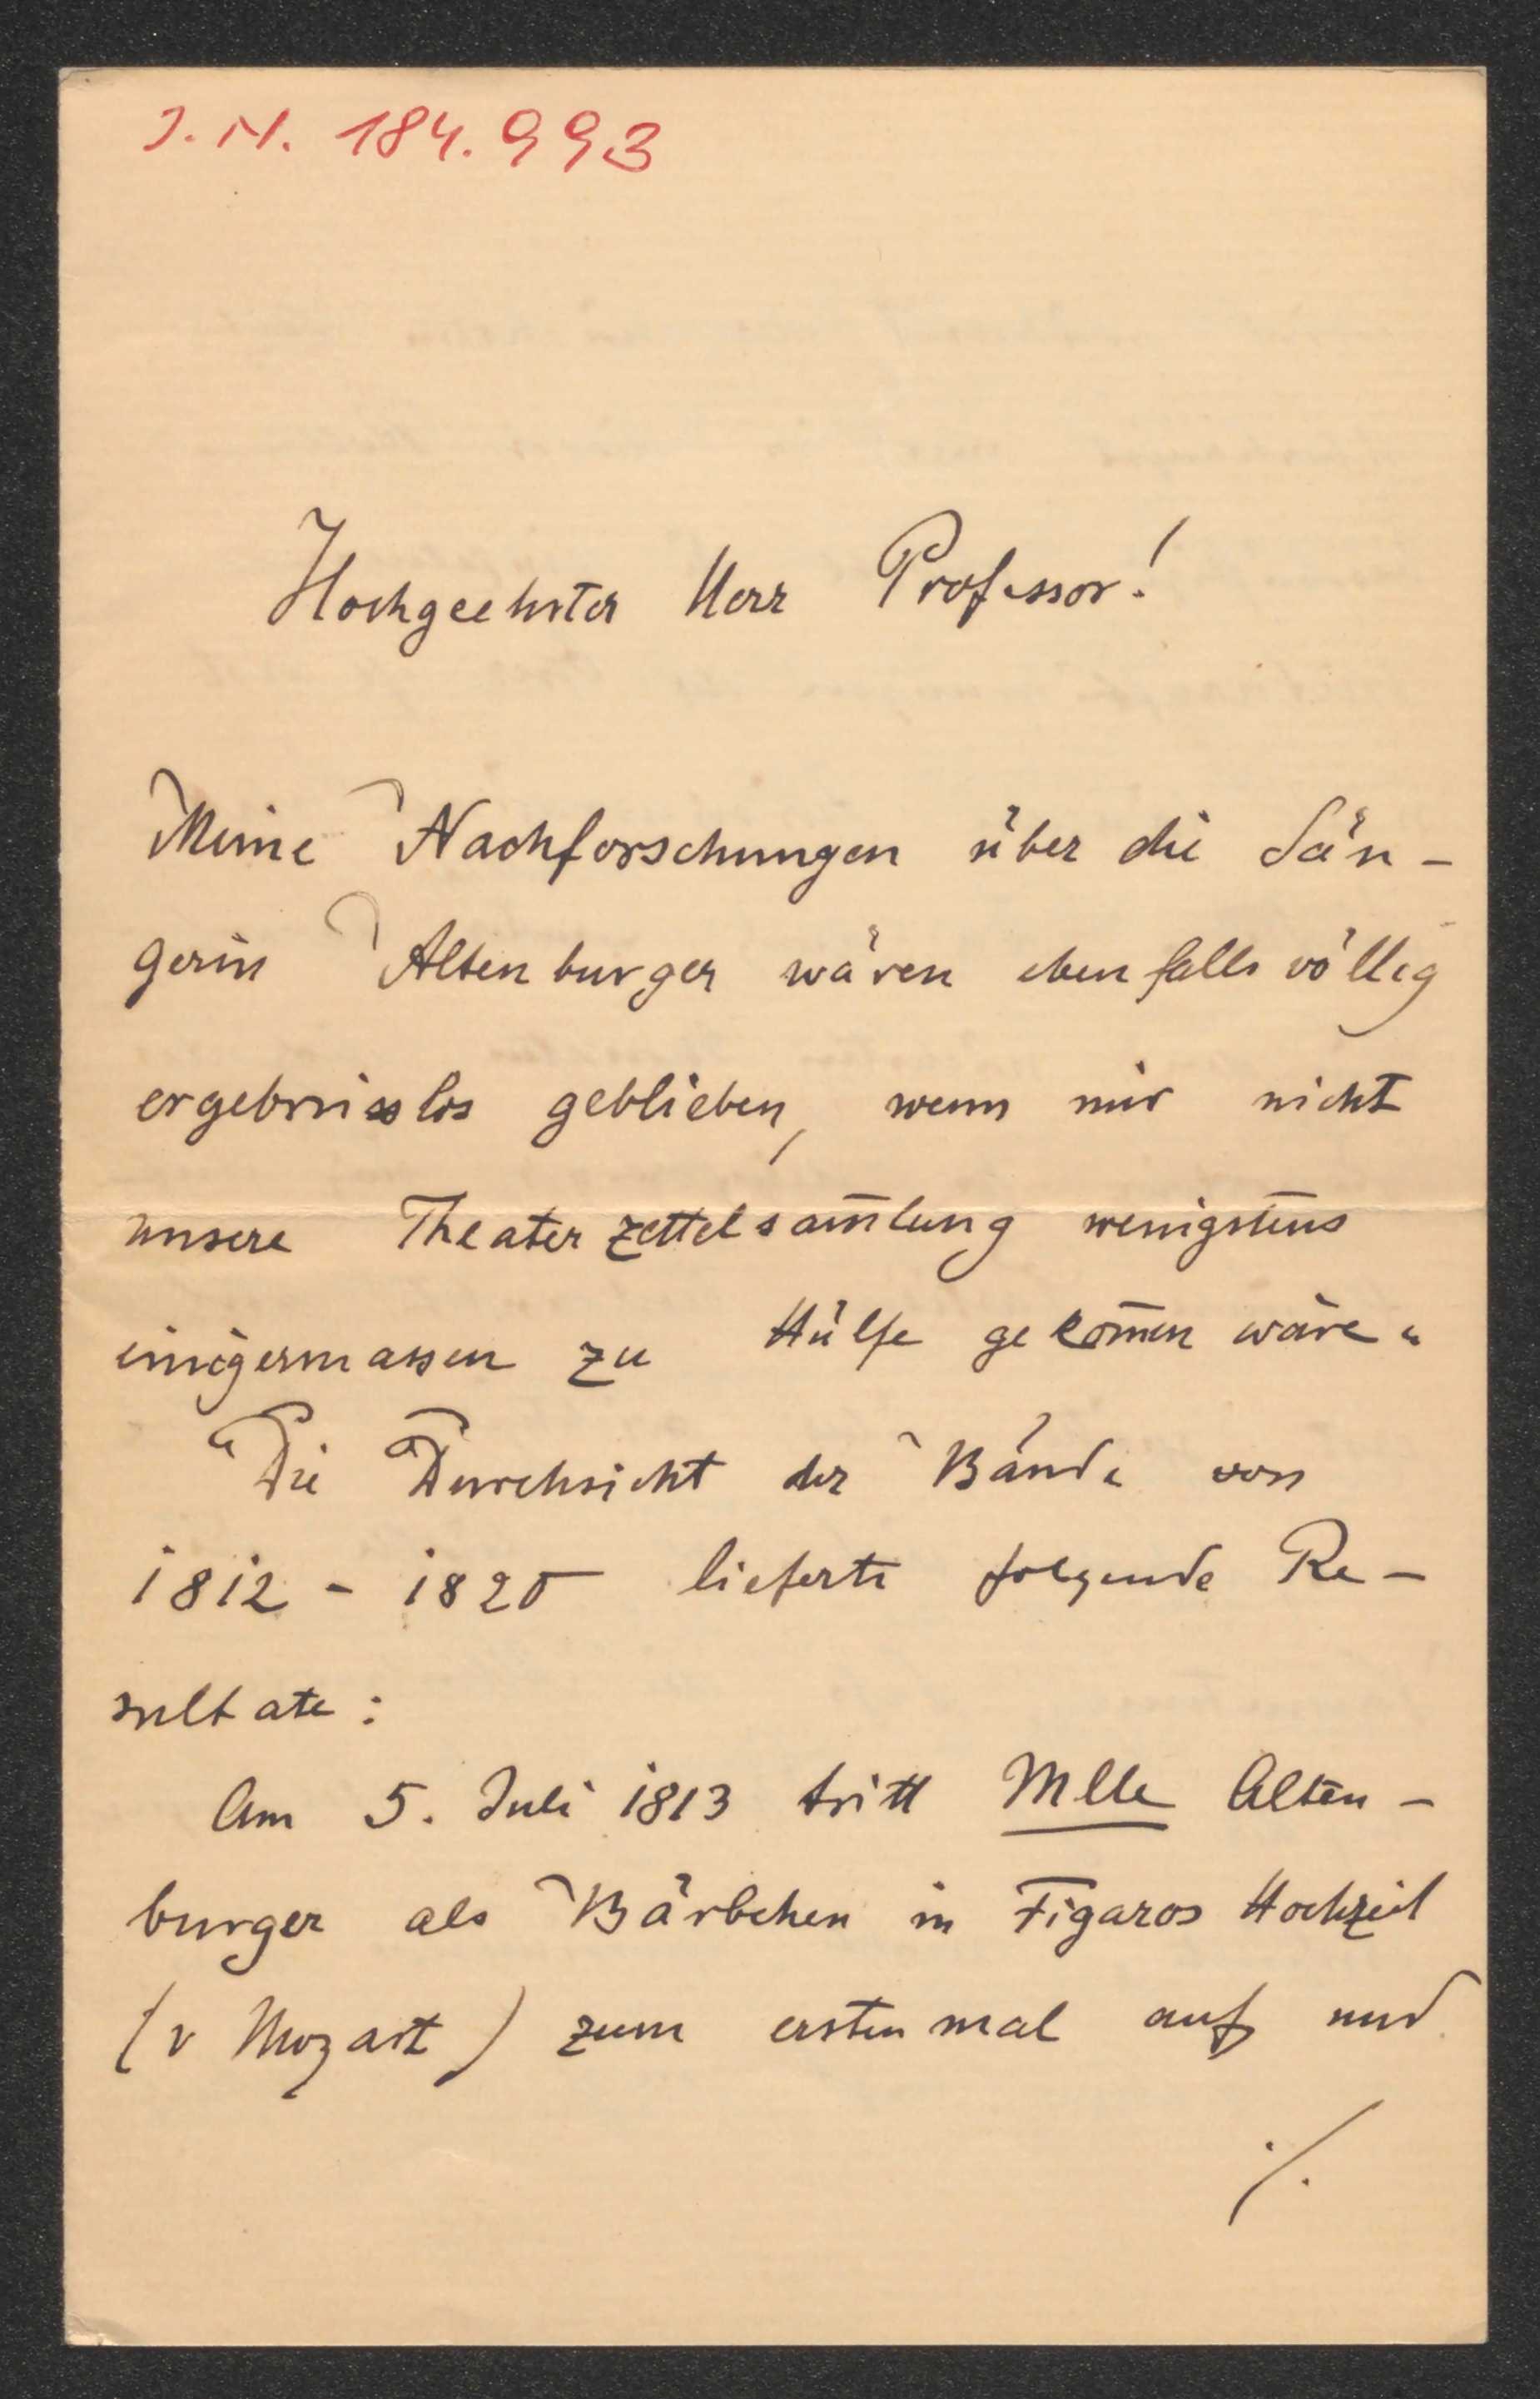 J.N. 184.993
Hochgeehrter Herr Professor!
Meine Nachforschungen über die Sän-
gerin Altenburger wären ebenfalls völlig
ergebnisslos geblieben, wenn mir nicht
unsere Theaterzettelsam̄lung wenigstens
einigermassen zu Hülfe gekom̄en wäre.
Die Durchsicht der Bände von
1812 - 1820 lieferte folgende Re-
sultate:
Am 5. Juli 1813 tritt Mlle Alten-
burger als Bärbchen in Figaros Hochzeit
(v Mozart) zum erstenmal auf und
./.